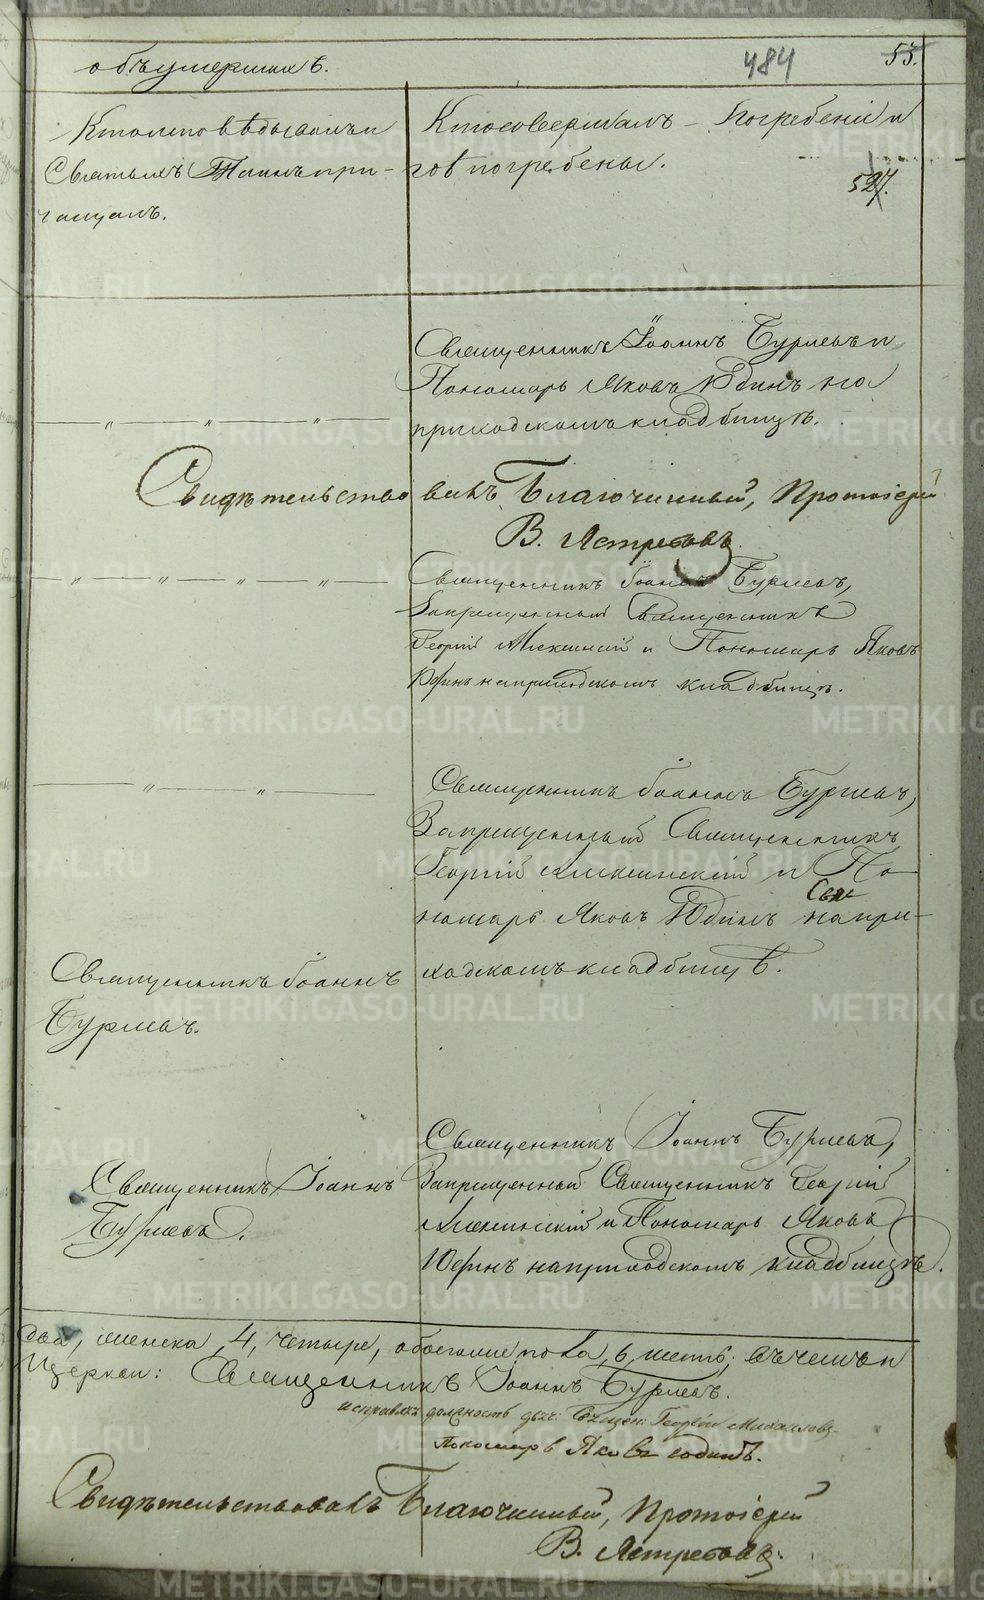 объ умершихъ.
484
53.
Кто исповѣдывалъ и
Святыхъ Таинъ при-
чащалъ.
Кто совершалъ погребеніе и
гдѣ погребены.
527.
Священникъ Іоаннъ Бурмевъ и
Пономарь Яковъ Юдинъ на
приходскомъ кладбищѣ.
Свидѣтельствовалъ Благочинный, Протоіерей
В. Ястребовъ.
Священникъ Іоаннъ Бурмевъ,
Запрещенный Священникъ
Георгій и Пономарь Яковъ
Юдинъ на приходскомъ кладбищѣ.
Священникъ Іоаннъ Бурмевъ,
Запрещенный Священникъ
Георгій и По-
номарь Яковъ Юдинъ на при-
ходскомъ кладбищѣ.
Священникъ Іоаннъ
Бурмевъ.
Священникъ Іоаннъ Бурмевъ,
Запрещенный Священникъ Георгій
и Пономарь Яковъ
Юдинъ на приходскомъ кладбищѣ.
Священникъ Іоаннъ
Бурмевъ.
два, женска, 4, четыре, обоего пола, 6, шесть; въ чемъ и
Церкви: Священникъ Іоаннъ Бурмевъ.
исправл. должность Священ: Георгій
Пономарь Яковъ Юдинъ.
Свидѣтельствовалъ Благочинный, Протоіерей
В. Ястребовъ.
METRIKI.GASO-URAL.RU